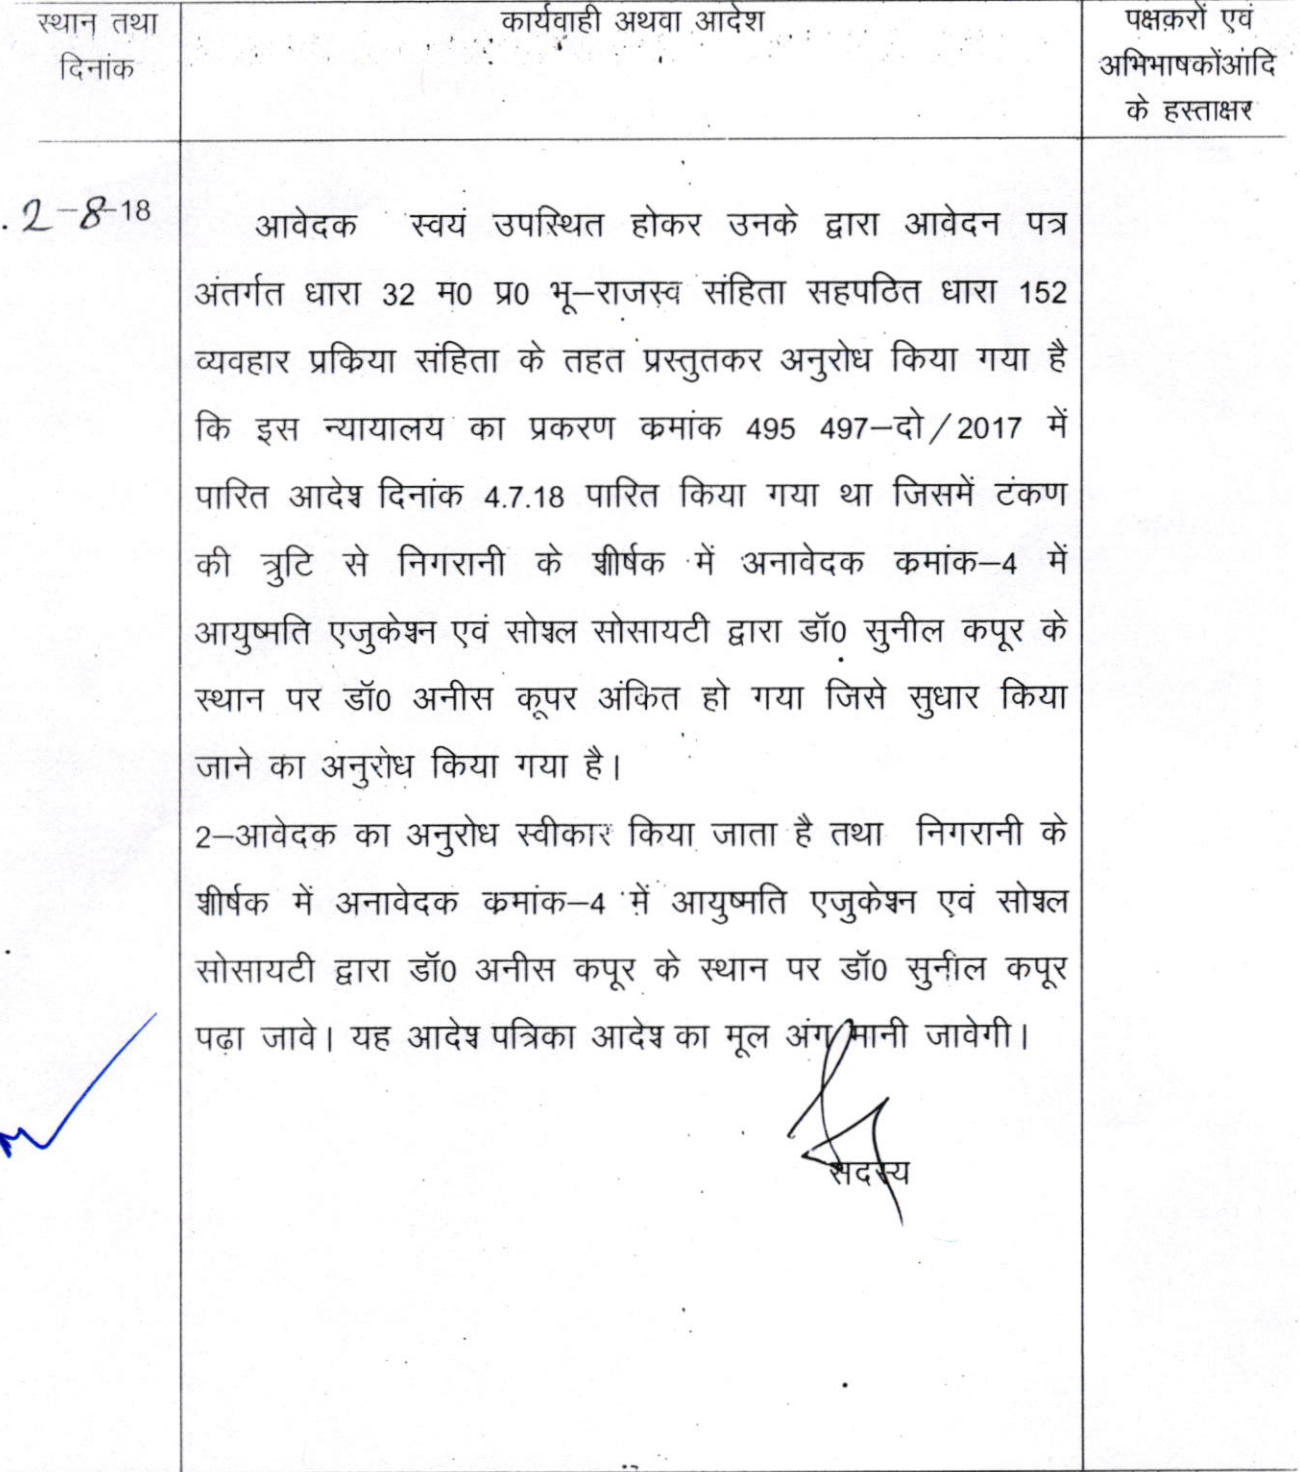 स्थान तथा
दिनांक
कार्यवाही अथवा आदेश
पक्षकरों एवं
अभिभाषकोंआदि
के हस्ताक्षर
2-8-18
आवेदक स्वयं उपस्थित होकर उनके द्वारा आवेदन पत्र
अंतर्गत धारा 32 म0 प्र0 भू–राजस्व संहिता सहपठित धारा 152
व्यवहार प्रकिया संहिता के तहत प्रस्तुतकर अनुरोध किया गया है
कि इस न्यायालय का प्रकरण कमांक 495 497–दो/2017 में
पारित आदेश दिनांक 4.7.18 पारित किया गया था जिसमें टंकण
की त्रुटि से निगरानी के शीर्षक में अनावेदक कमांक–4 में
आयुष्मति एजुकेश्न एवं सोश्ल सोसायटी द्वारा डॉ0 सुनील कपूर के
स्थान पर डॉ0 अनीस कूपर अंकित हो गया जिसे सुधार किया
जाने का अनुरोध किया गया है।
2–आवेदक का अनुरोध स्वीकार किया जाता है तथा निगरानी के
शीर्षक में अनावेदक कमांक–4 में आयुष्मति एजुकेश्न एवं सोश्ल
सोसायटी द्वारा डॉ0 अनीस कपूर के स्थान पर डॉ0 सुनील कपूर
पढ़ा जावे। यह आदेश पत्रिका आदेश का मूल अंग मानी जावेगी।
सदस्य